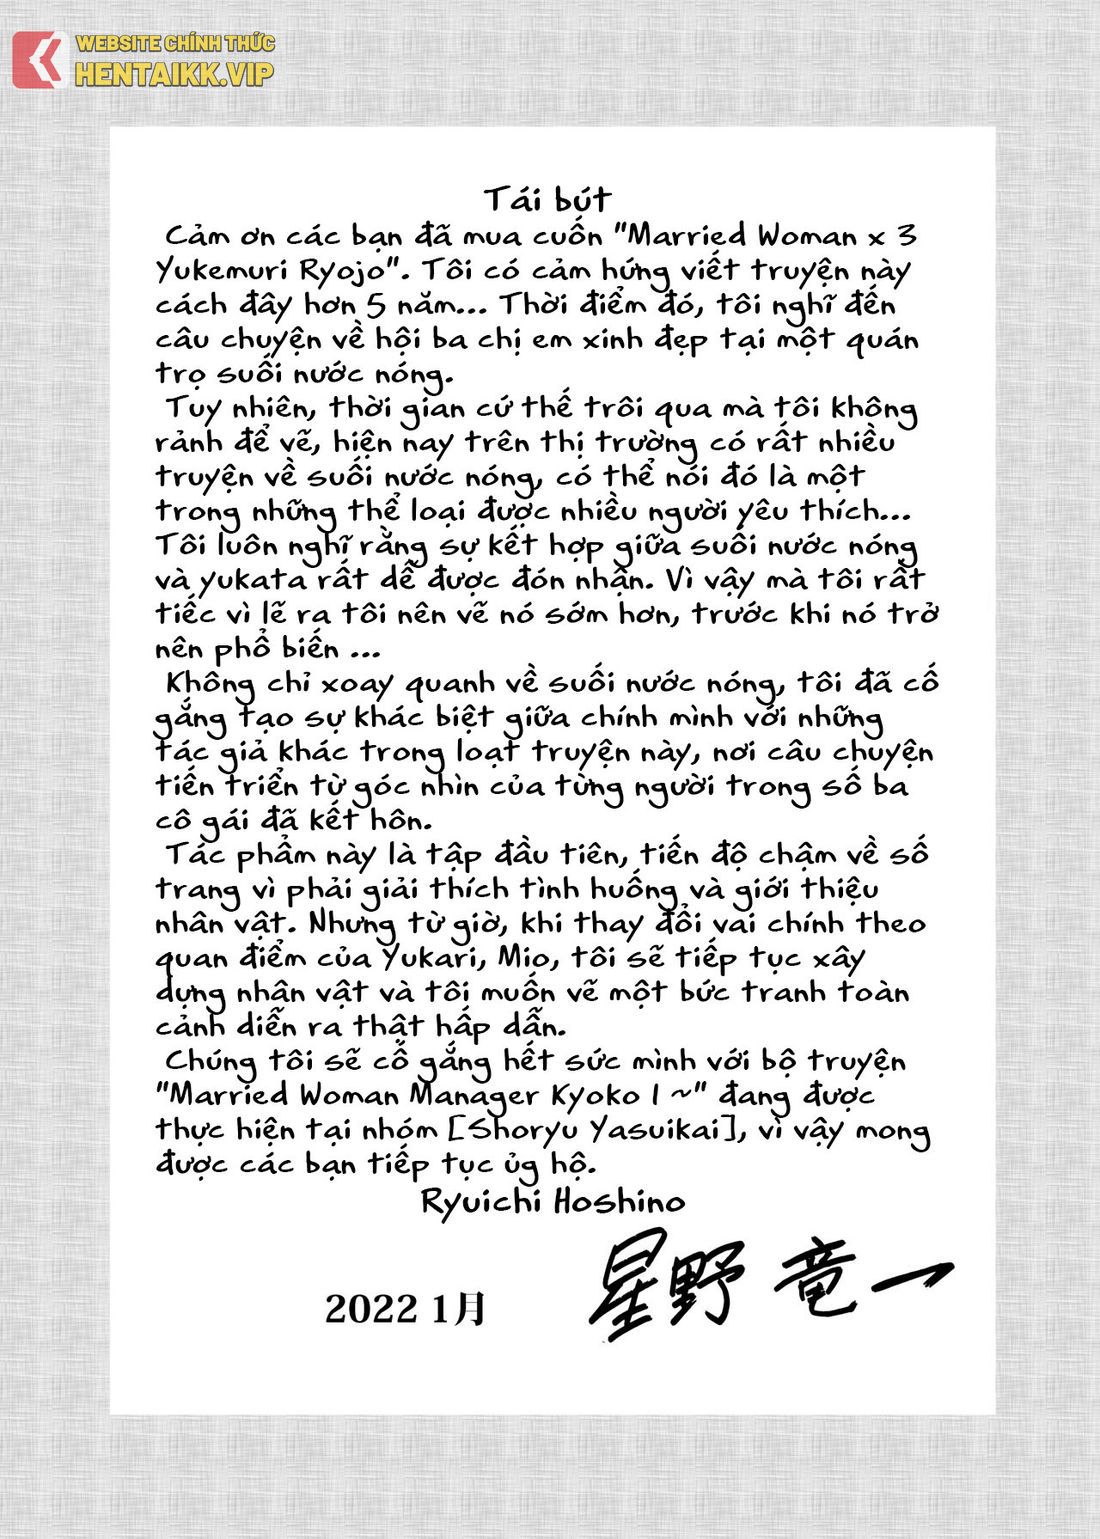 WEBSITE CHÍNH THỨC
HENTAIKK.VIP
Tái bút
Cảm ơn các bạn đã mua cuốn "Married Woman x 3
Yukemuri Ryojo". Tôi có cảm hứng viết truyện này
cách đây hơn 5 năm... Thời điểm đó, tôi nghĩ đến
câu chuyện về hội ba chị em xinh đẹp tại một quán
trọ suối nước nóng.
Tuy nhiên, thời gian cứ thế trôi qua mà tôi không
rảnh để vẽ, hiện nay trên thị trường có rất nhiều
truyện về suối nước nóng, có thể nói đó là một
trong những thể loại được nhiều người yêu thích...
Tôi luôn nghĩ rằng sự kết hợp giữa suối nước nóng
và yukata rất dễ được đón nhận. Vì vậy mà tôi rất
tiếc vì lẽ ra tôi nên vẽ nó sớm hơn, trước khi nó trở
nên phổ biến ...
Không chỉ xoay quanh về suối nước nóng, tôi đã cố
gắng tạo sự khác biệt giữa chính mình với những
tác giả khác trong loạt truyện này, nơi câu chuyện
tiến triển từ góc nhìn của từng người trong số ba
cô gái đã kết hôn.
Tác phẩm này là tập đầu tiên, tiến độ chậm về số
trang vì phải giải thích tình huống và giới thiệu
nhân vật. Nhưng từ giờ, khi thay đổi vai chính theo
quan điểm của Yukari, Mio, tôi sẽ tiếp tục xây
dựng nhân vật và tôi muốn vẽ một bức tranh toàn
cảnh diễn ra thật hấp dẫn.
Chúng tôi sẽ cố gắng hết sức mình với bộ truyện
"Married Woman Manager Kyoko 1 ~" đang được
thực hiện tại nhóm [Shoryu Yasuikai], vì vậy mong
được các bạn tiếp tục ủg hộ.
Ryuichi Hoshino
星野 竜一
2022 1月